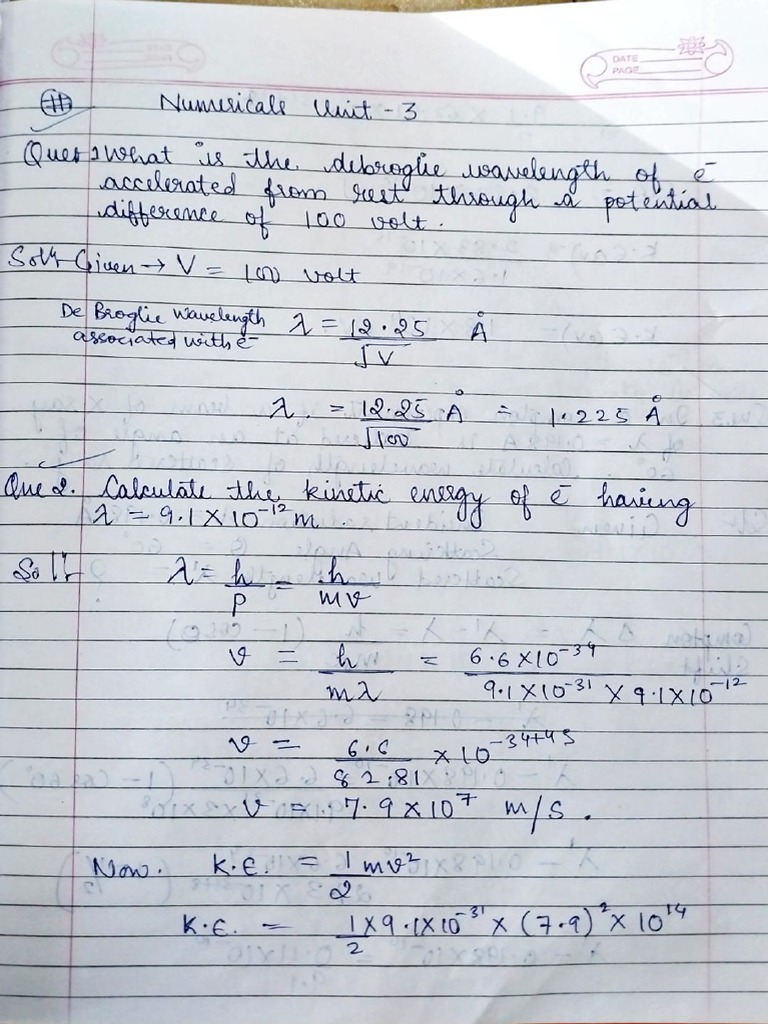 DATE
PAGE
Numericals Unit - 3
Ques 1 What is the debroglie wavelength of e⁻
accelerated from rest through a potential
difference of 100 volt.
Solⁿ Given → V = 100 volt
De Broglie Wavelength
associated with e⁻
λ = 12.25/√V Å
λ = 12.25/√100 Å = 1.225 Å
Que 2. Calculate the kinetic energy of e⁻ having
λ = 9.1 × 10⁻¹² m.
Solⁿ λ = h/p = h/mv
v = h/mλ = 6.6 × 10⁻³⁴ / 9.1 × 10⁻³¹ × 9.1 × 10⁻¹²
v = 6.6/82.81 × 10⁻³⁴⁺⁴³
v = 7.9 × 10⁷ m/s.
Now. K.E. = 1/2 mv²
K.E. = 1/2 × 9.1 × 10⁻³¹ × (7.9)² × 10¹⁴